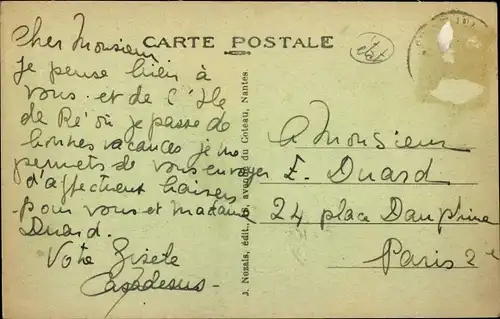 Cher Monsieur
Je pense bien à
vous et de l'Ile
de Ré où je passe de
bonnes vacances je me
permets de vous envoyer
d'affectueux baisers
pour vous et Madame
Duard.
Votre Gisele
Casadesus
CARTE POSTALE
J. Nozais, édit., avenue du Coteau, Nantes.
A Monsieur
E. Duard
24 place Dauphine
Paris 2e